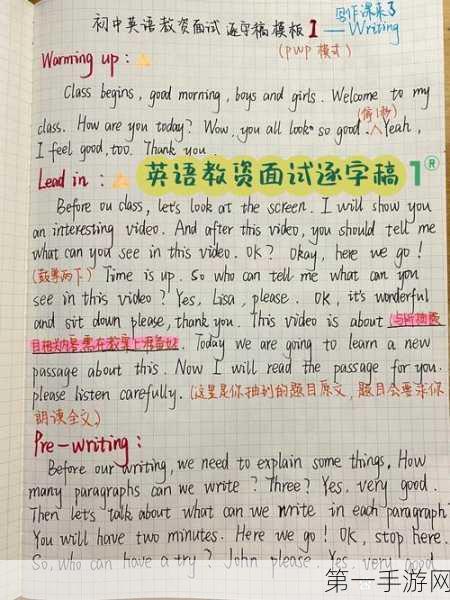 初中英语教资面试逐字稿模板1 — Writing
写作课来了
(PWP模式)
Warming up:
Class begins, good morning, boys and girls. Welcome to my
(停1秒)
class. How are you today? Wow, you all look so good. Yeah,
I feel good, too. Thank you.
Lead in:
英语教资面试逐字稿1®
Before ou class, let's look at the screen. I will show you
an interesting video. And after this video, you should tell me
what can you see in this video. OK? Okay, here we go!
(鼓掌两下) Time is up. So who can tell me what can you
see in this video? Yes, Lisa, please. OK, it's wonderful
and sit down please, thank you. This video is about (与所抽题
目相关内容需在教案上准备好. Today we are going to learn a new
passage about this. Now I will read the passage for you.
please listen carefully. (这里是你抽到的题目原文,题目会要求你
朗读全文)
Pre-writing:
Before our writing, we need to explain some things. How
many paragraphs can we write? Three? Yes. very good.
Then let's talk about what can we write in each paragraph?
You will have two minutes. Here we go! OK, stop here.
So, who can have a try? John please. Yes. very good
第一手游网